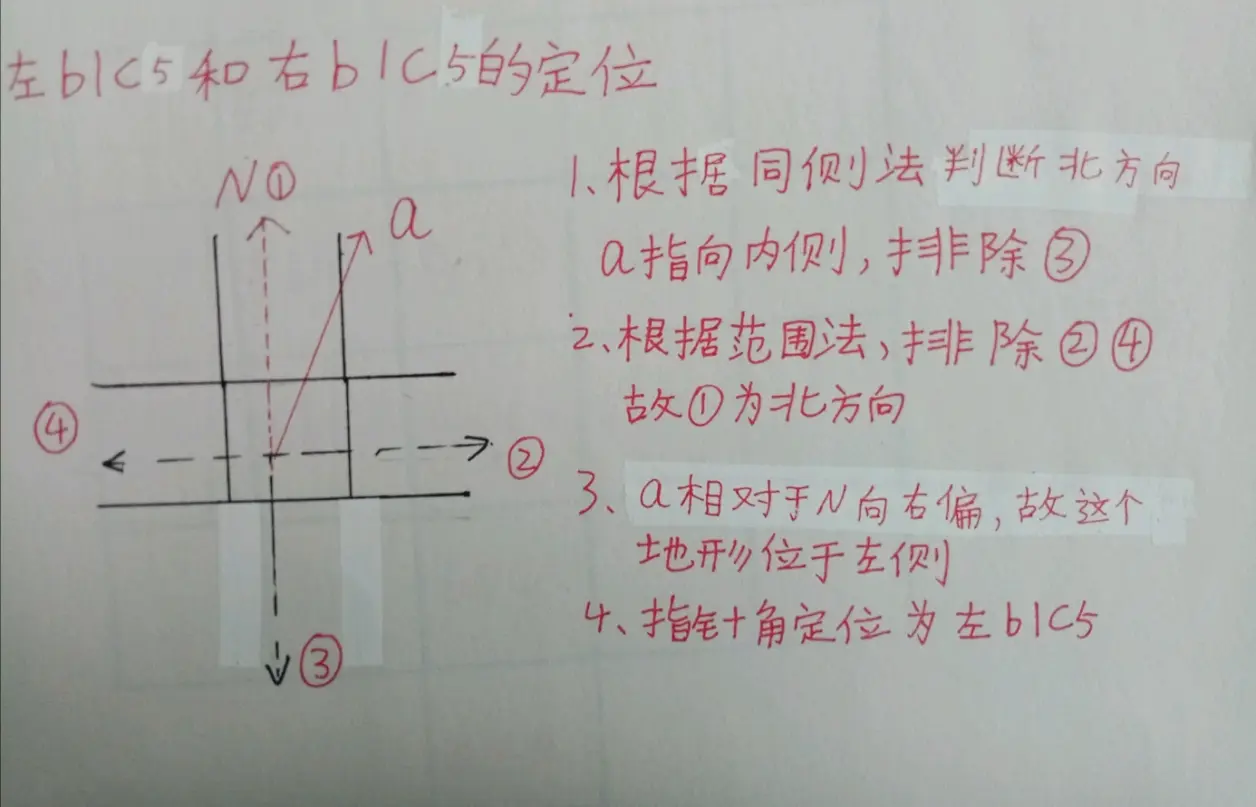 左b1c5和右b1c5的定位
N①
a
④
②
③
1、根据同侧法判断北方向
a指向内侧,排除③
2、根据范围法,排除②④
故①为北方向
3、a相对于N向右偏,故这个
地形位于左侧
4、指针+角定位为左b1c5